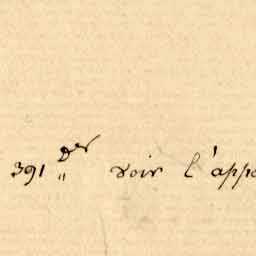 391 Der voir l'appo